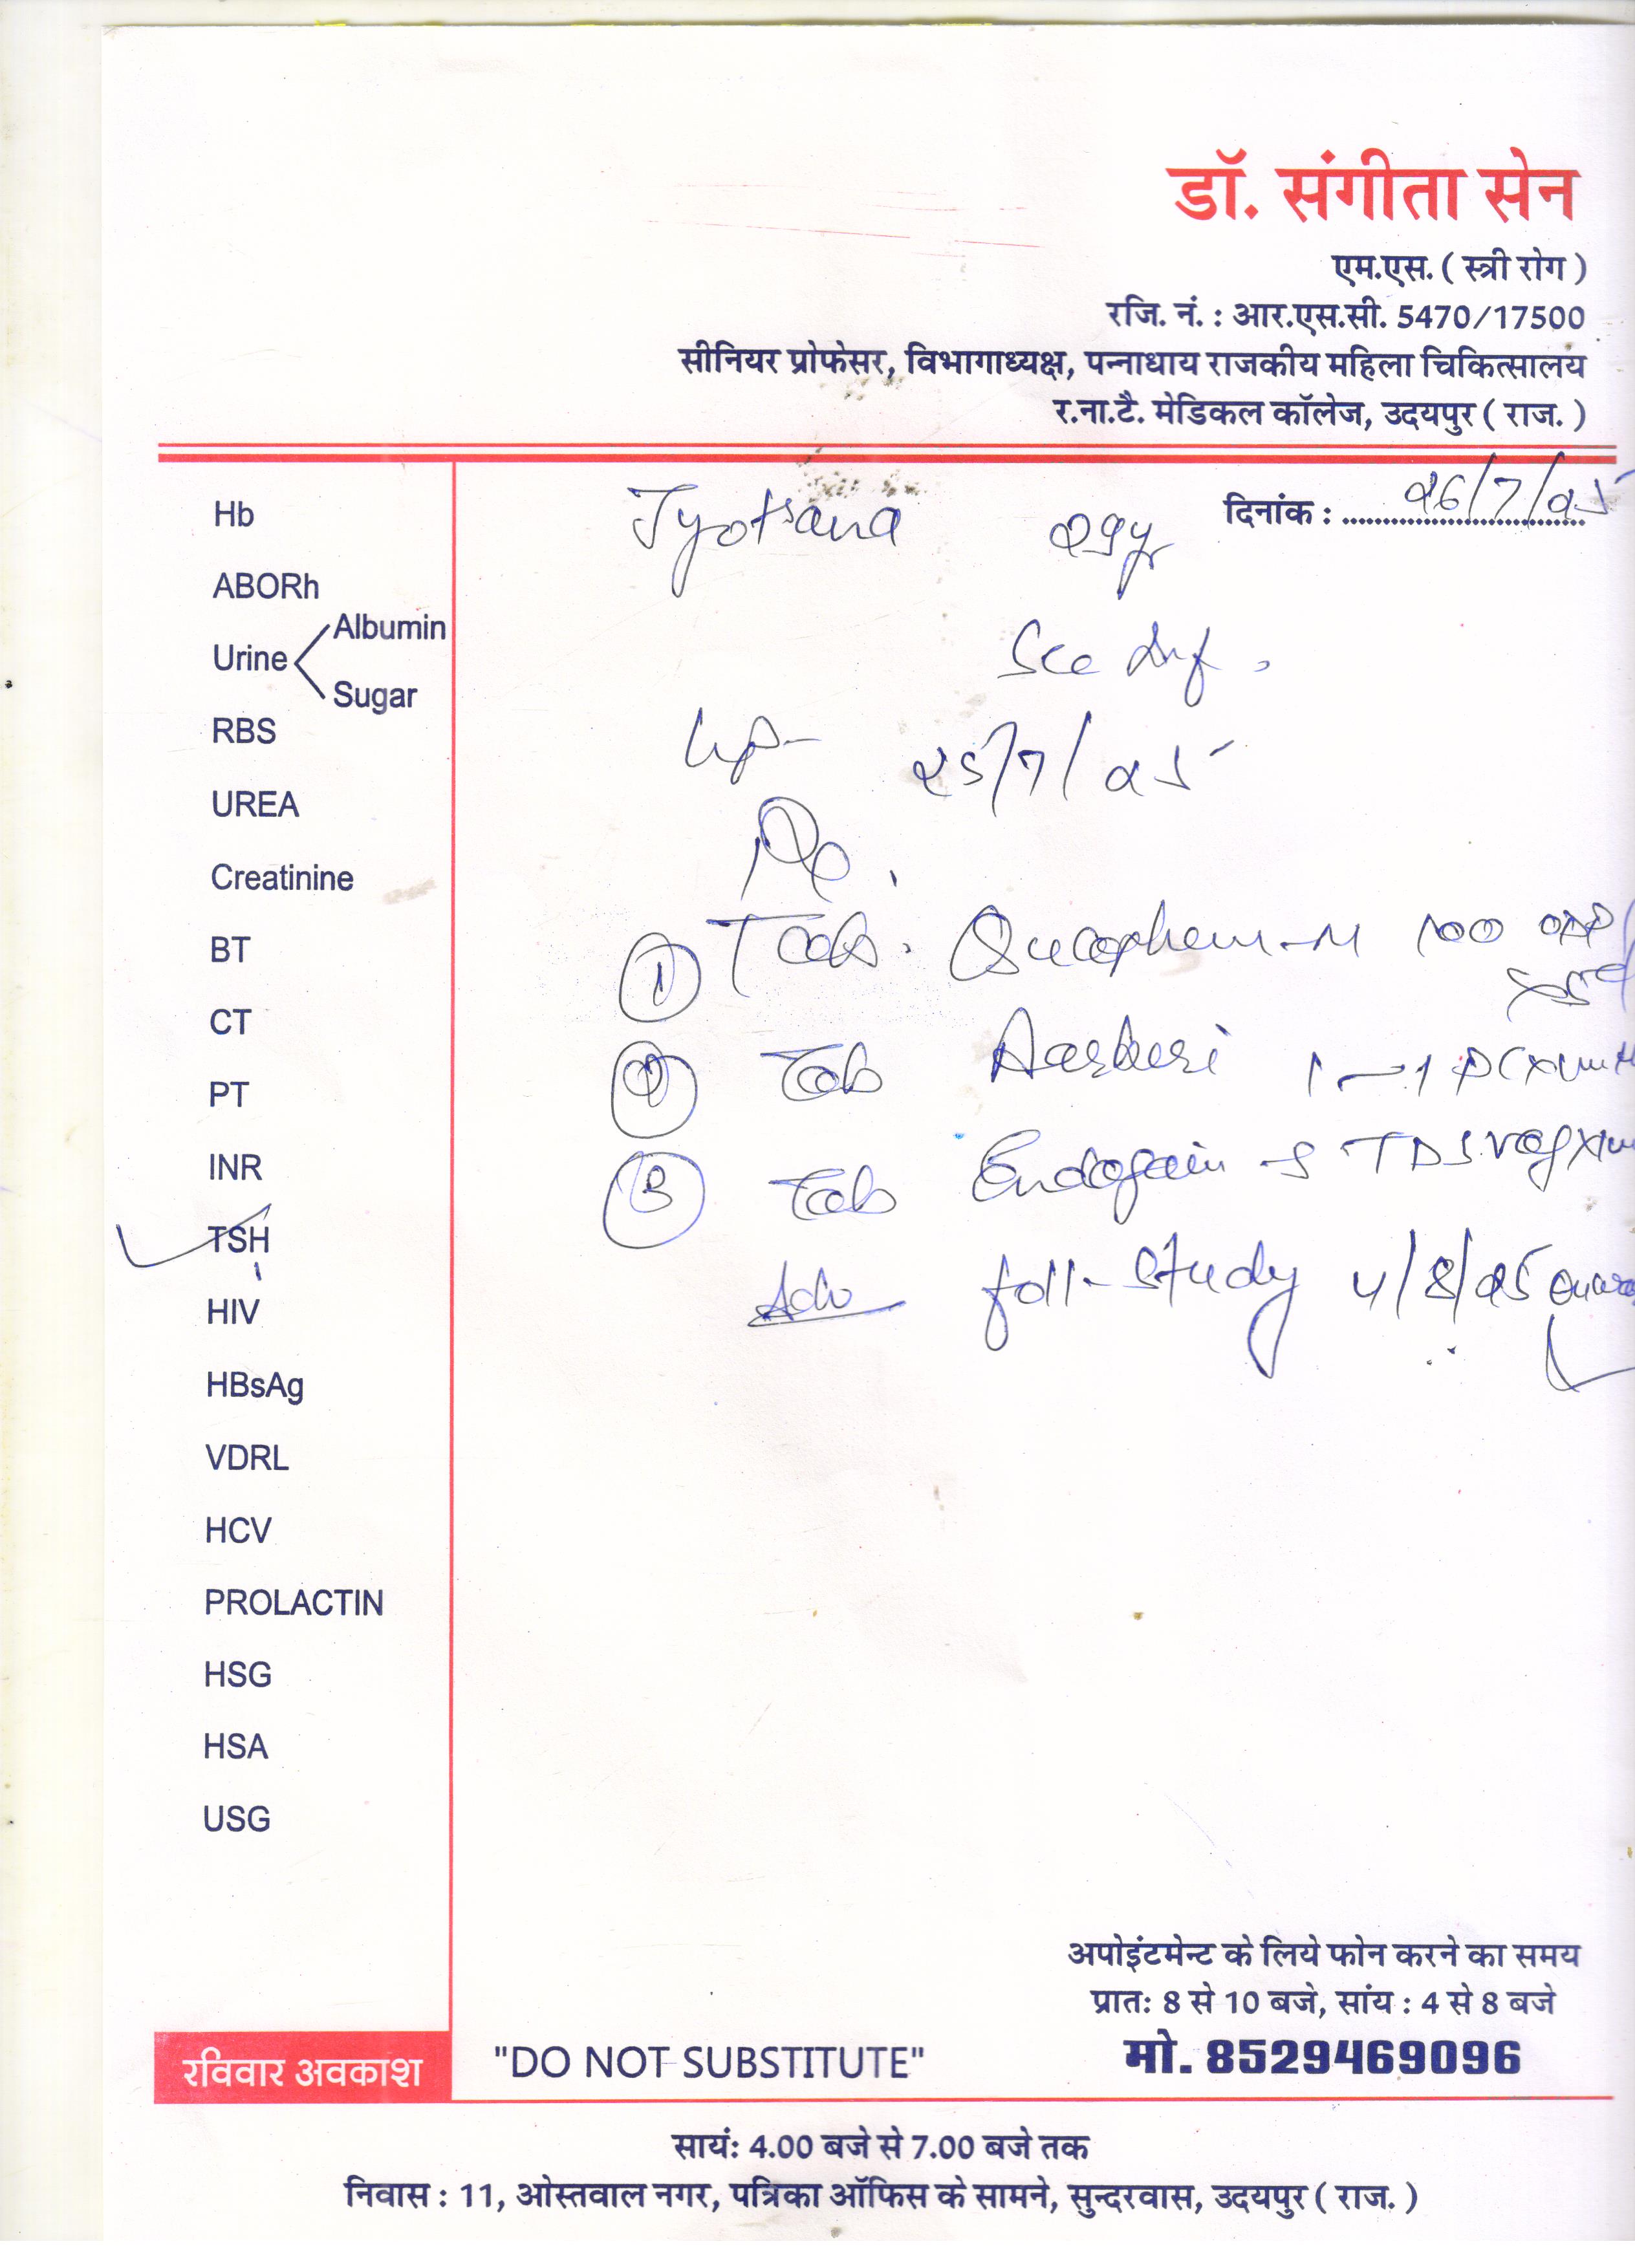 डॉ. संगीता सेन
एम.एस. ( स्त्री रोग )
रजि. नं. : आर.एस.सी. 5470/17500
सीनियर प्रोफेसर, विभागाध्यक्ष, पन्नाधाय राजकीय महिला चिकित्सालय
र.ना.टै. मेडिकल कॉलेज, उदयपुर ( राज. )
दिनांक : 26/7/25
Jyotsana 29yr
Sec Inf.
25/7/25
① Tab. 100
② Tab
③ Tab TDS
Adv foll-study 4/8/25
Hb
ABORh
Urine Albumin
Sugar
RBS
UREA
Creatinine
BT
CT
PT
INR
TSH
HIV
HBsAg
VDRL
HCV
PROLACTIN
HSG
HSA
USG
अपोइंटमेन्ट के लिये फोन करने का समय
प्रातः 8 से 10 बजे, सांय : 4 से 8 बजे
मो. 8529469096
रविवार अवकाश
"DO NOT SUBSTITUTE"
सायं: 4.00 बजे से 7.00 बजे तक
निवास : 11, ओस्तवाल नगर, पत्रिका ऑफिस के सामने, सुन्दरवास, उदयपुर ( राज. )